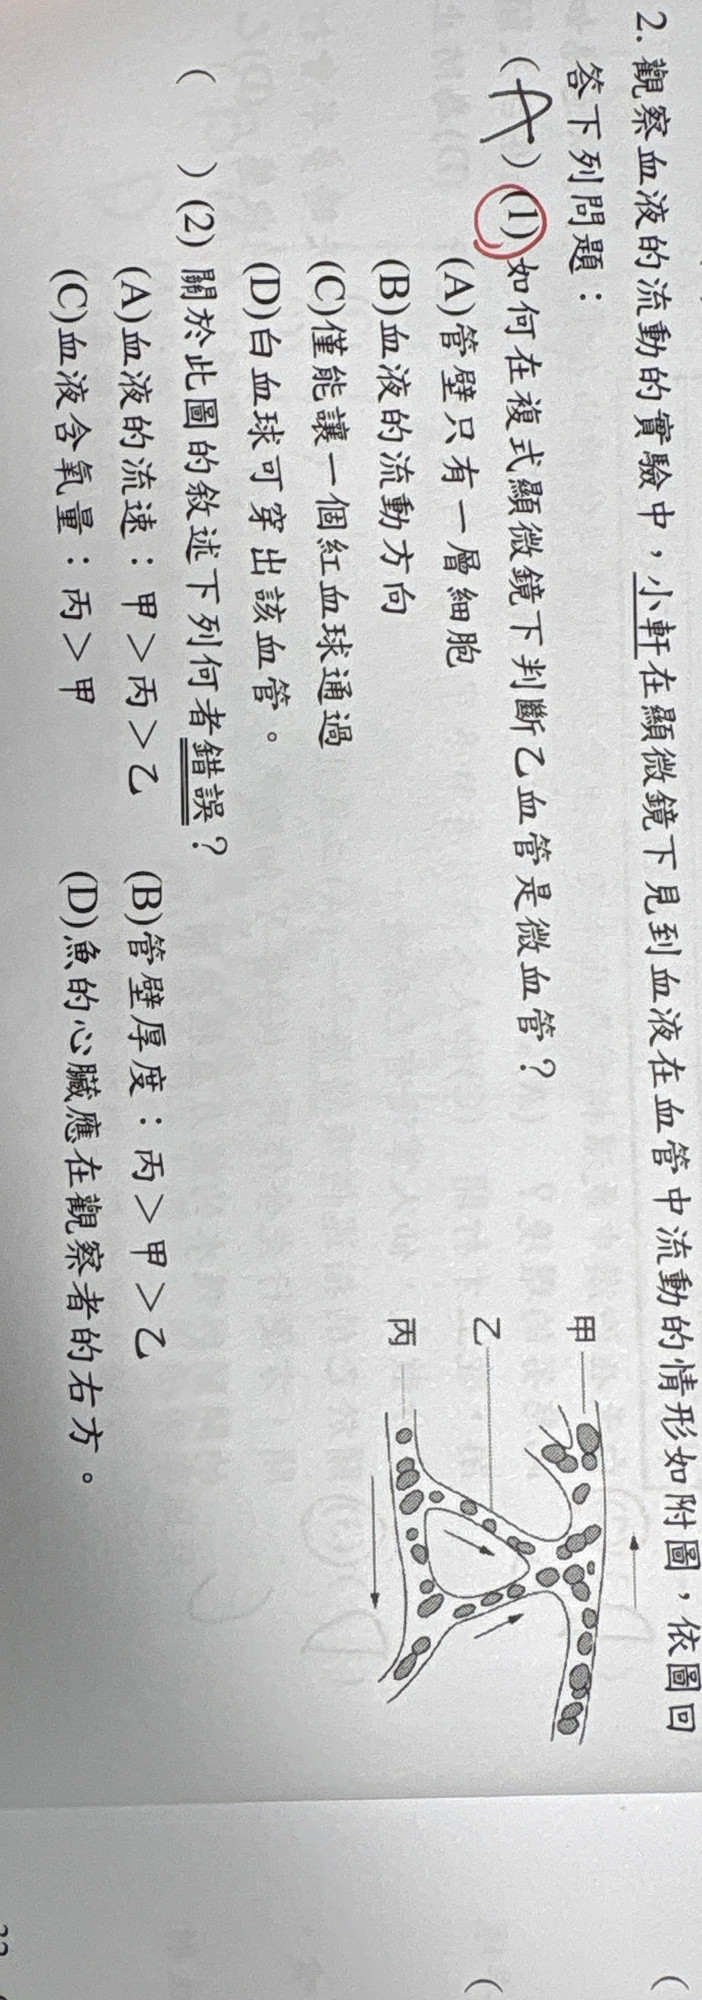 2. 觀察血液的流動的實驗中，小軒在顯微鏡下見到血液在血管中流動的情形如附圖，依圖回
答下列問題：
(A) (1) 如何在複式顯微鏡下判斷乙血管是微血管？
(A)管壁只有一層細胞
(B)血液的流動方向
(C)僅能讓一個紅血球通過
(D)白血球可穿出該血管。
甲
乙
丙
( ) (2) 關於此圖的敘述下列何者錯誤？
(A)血液的流速：甲＞丙＞乙 (B)管壁厚度：丙＞甲＞乙
(C)血液含氧量：丙＞甲 (D)魚的心臟應在觀察者的右方。